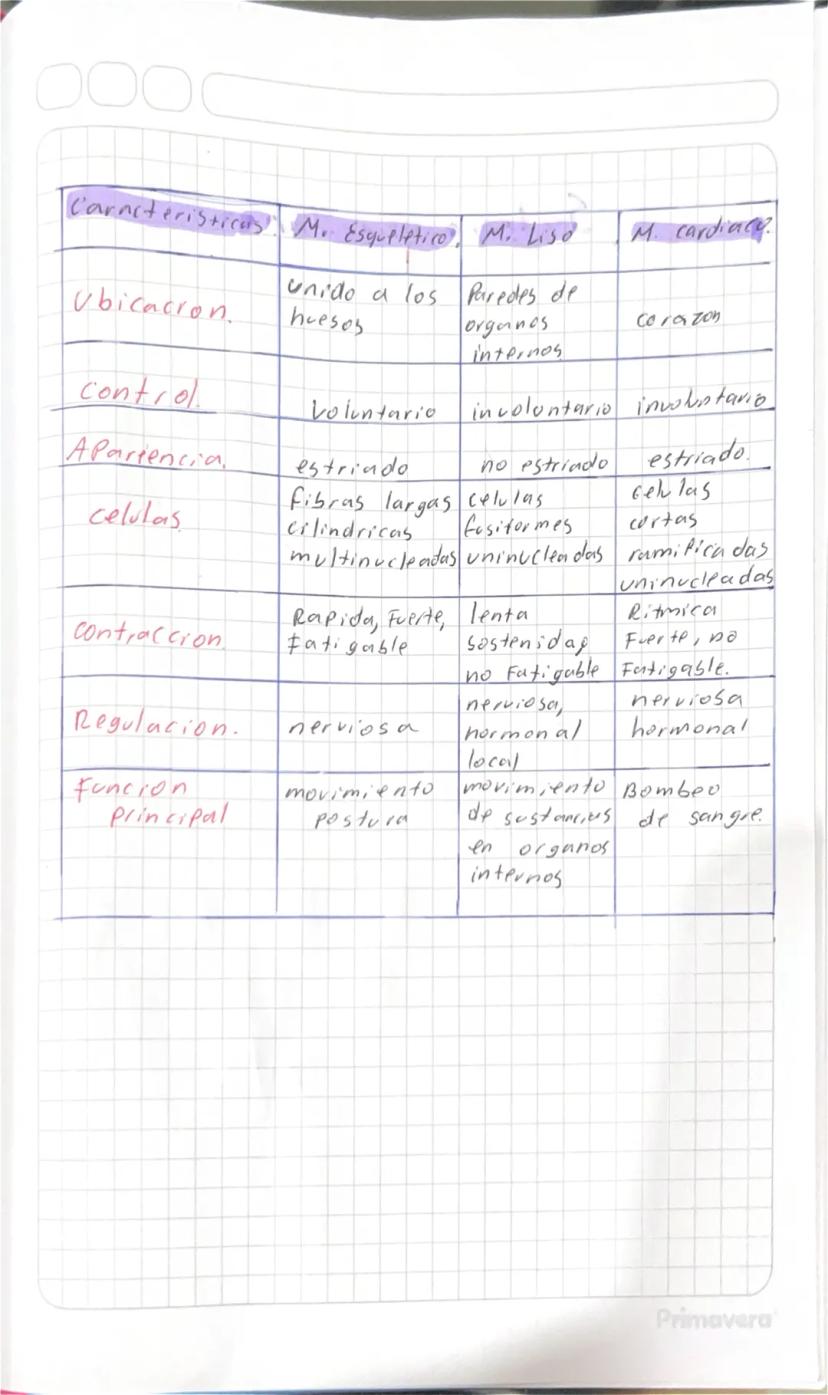 Características. M. Esquelético. M. Liso M. cardiaco.
Ubicacion. unido a los huesos Paredes de organos internos corazon
Control. Voluntario involuntario involuntario
APariencia. estriado no estriado estriado.
celulas fibras largas cilindricas multinucleadas celulas fusiformes uninucleadas celulas cortas ramificadas uninucleadas
contraccion Rapida, Fuerte, Fatigable lenta sostenida, no Fatigable Ritmica Fuerte, no Fatigable.
Regulacion. nerviosa nerviosa, hormonal local nerviosa hormonal
Funcion principal movimiento postura movimiento de sustancias en organos internos Bombeo de sangre.
Primavera